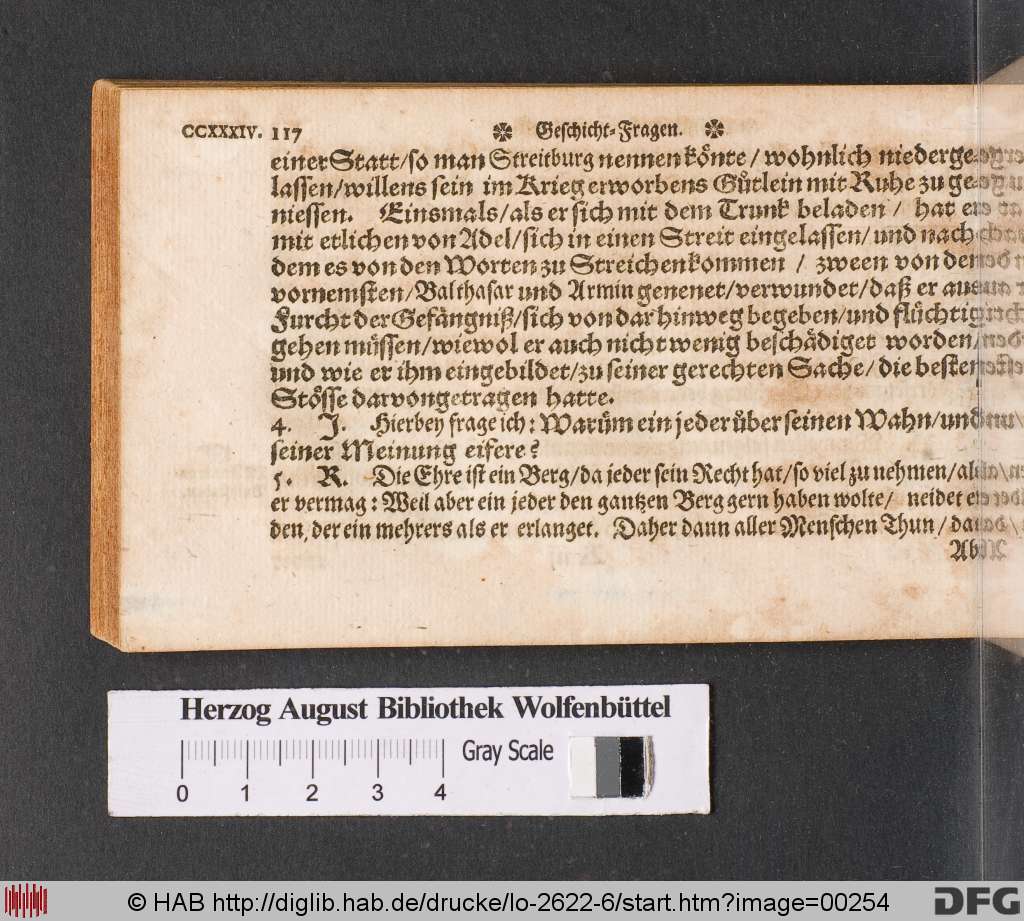 CCXXXIV. 117 ✼ Geschicht-Fragen. ✼
einer Statt/so man Streitburg nennen könte/ wohnlich niederge-
lassen/willens sein im Krieg erworbens Gůtlein mit Ruhe zu ge-
niessen. Einsmals/als er sich mit dem Trunk beladen / hat er
mit etlichen von Adel/sich in einen Streit eingelassen/und nach
dem es von den Worten zu Streichen kommen / zween von den
vornemsten/Balthasar und Armin genenet/verwundet/daß er aus
Furcht der Gefängniß/sich von dar hinweg begeben/und flüchtig
gehen müssen/wiewol er auch nicht wenig beschädiget worden/
und wie er ihm eingebildet/zu seiner gerechten Sache/ die besten
Stösse darvongetragen hatte.
4. J. Hierbey frage ich: Warům ein jeder ůber seinen Wahn/und
seiner Meinung eifere?
5. R. Die Ehre ist ein Berg/da jeder sein Recht hat/so viel zu nehmen/als
er vermag: Weil aber ein jeder den gantzen Berg gern haben wolte/ neidet er
den, der ein mehrers als er erlanget. Daher dann aller Menschen Thun/
Ab
Herzog August Bibliothek Wolfenbüttel
Gray Scale
0 1 2 3 4
© HAB http://diglib.hab.de/drucke/lo-2622-6/start.htm?image=00254
DFG